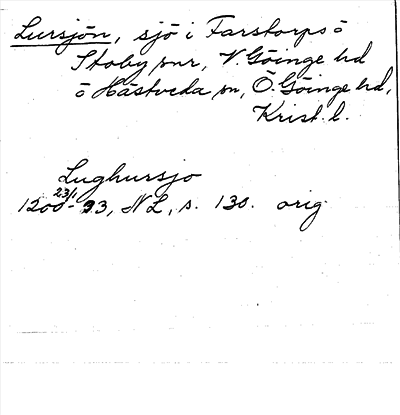 Lursjön, sjö i Farstorps o
Stoby snr, V Göinge hd
o Hästveda sn, Ö. Göinge hd,
Krist. l.
Lughursjo
23/1
1200- 93, NL, s. 130. orig.